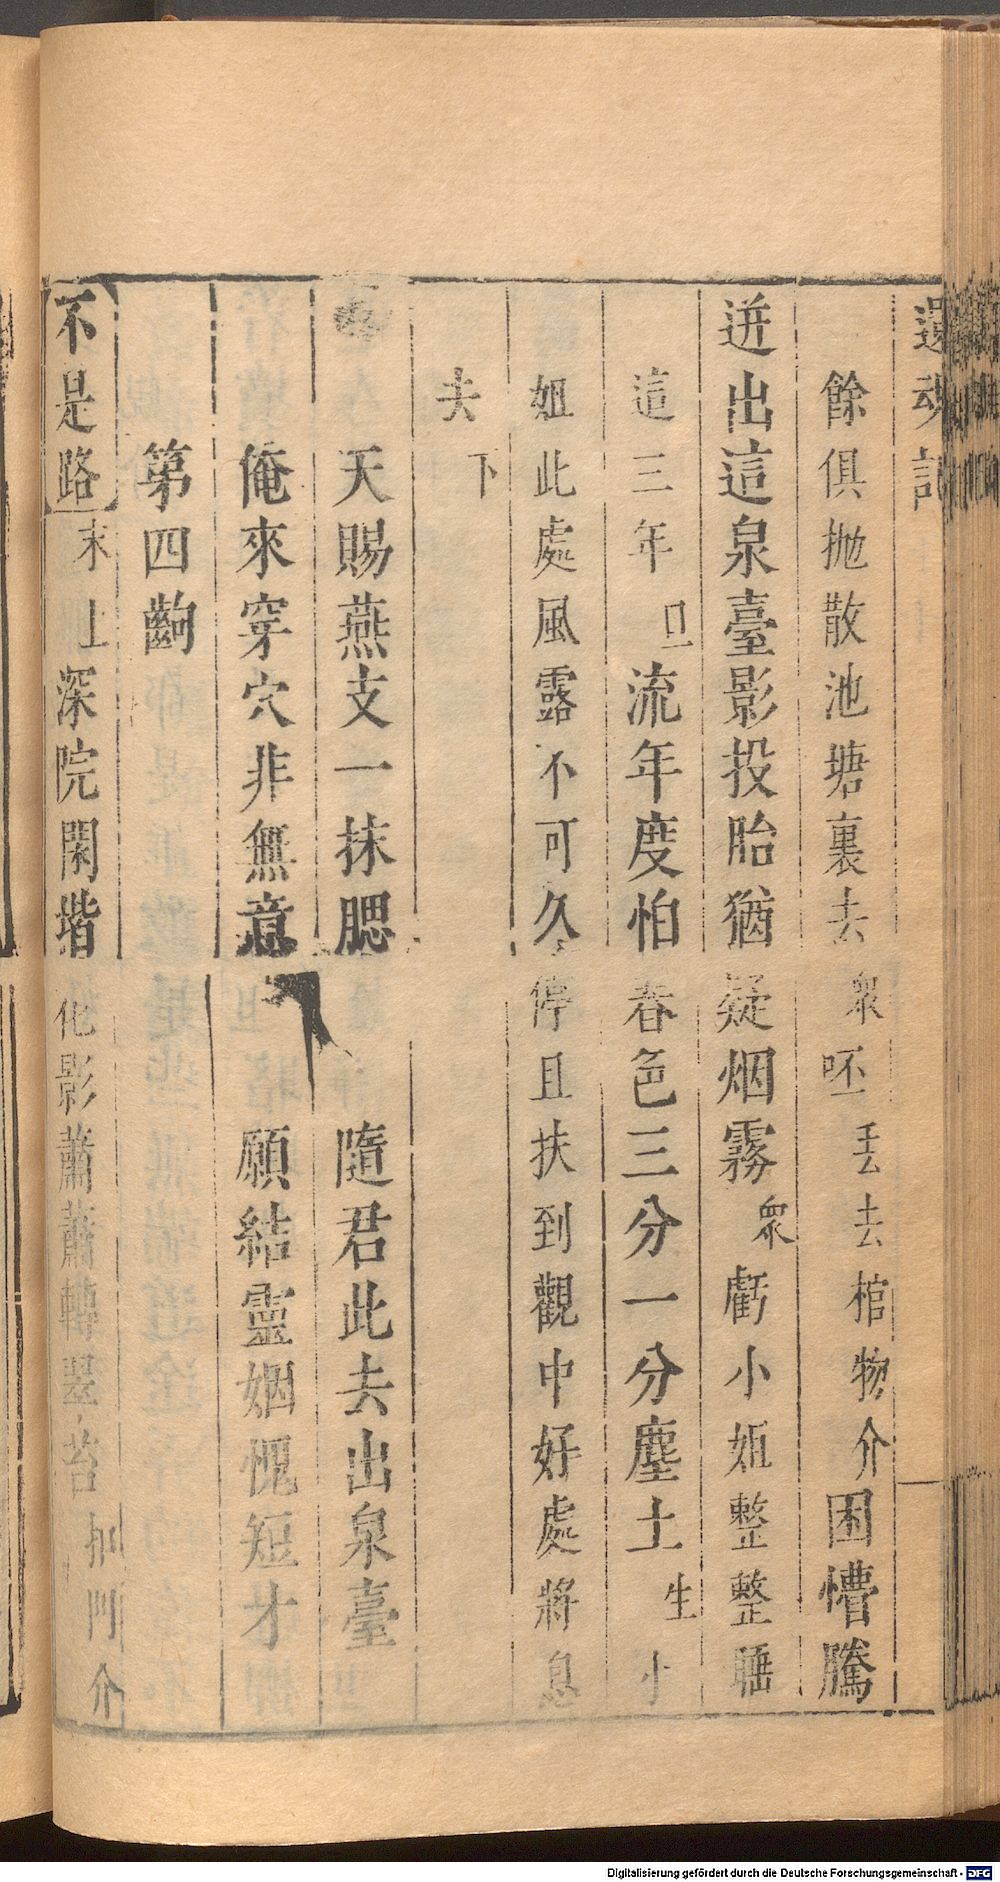 還魂記
餘俱拋散池塘裏去衆呸丟去棺物介困懵騰
迸出這泉臺影投胎猶疑烟霧衆虧小姐整整睡
這三年旦流年度怕春色三分一分塵土生小
姐此處風露不可久停且扶到觀中好處將息
去下
天賜燕支一抹腮 隨君此去出泉臺
俺來穿穴非無意 願結靈姻愧短才
第四齣
不是路末上深院閑堦花影蕭蕭轉翠苔扣門介
Digitalisierung gefördert durch die Deutsche Forschungsgemeinschaft - DFG